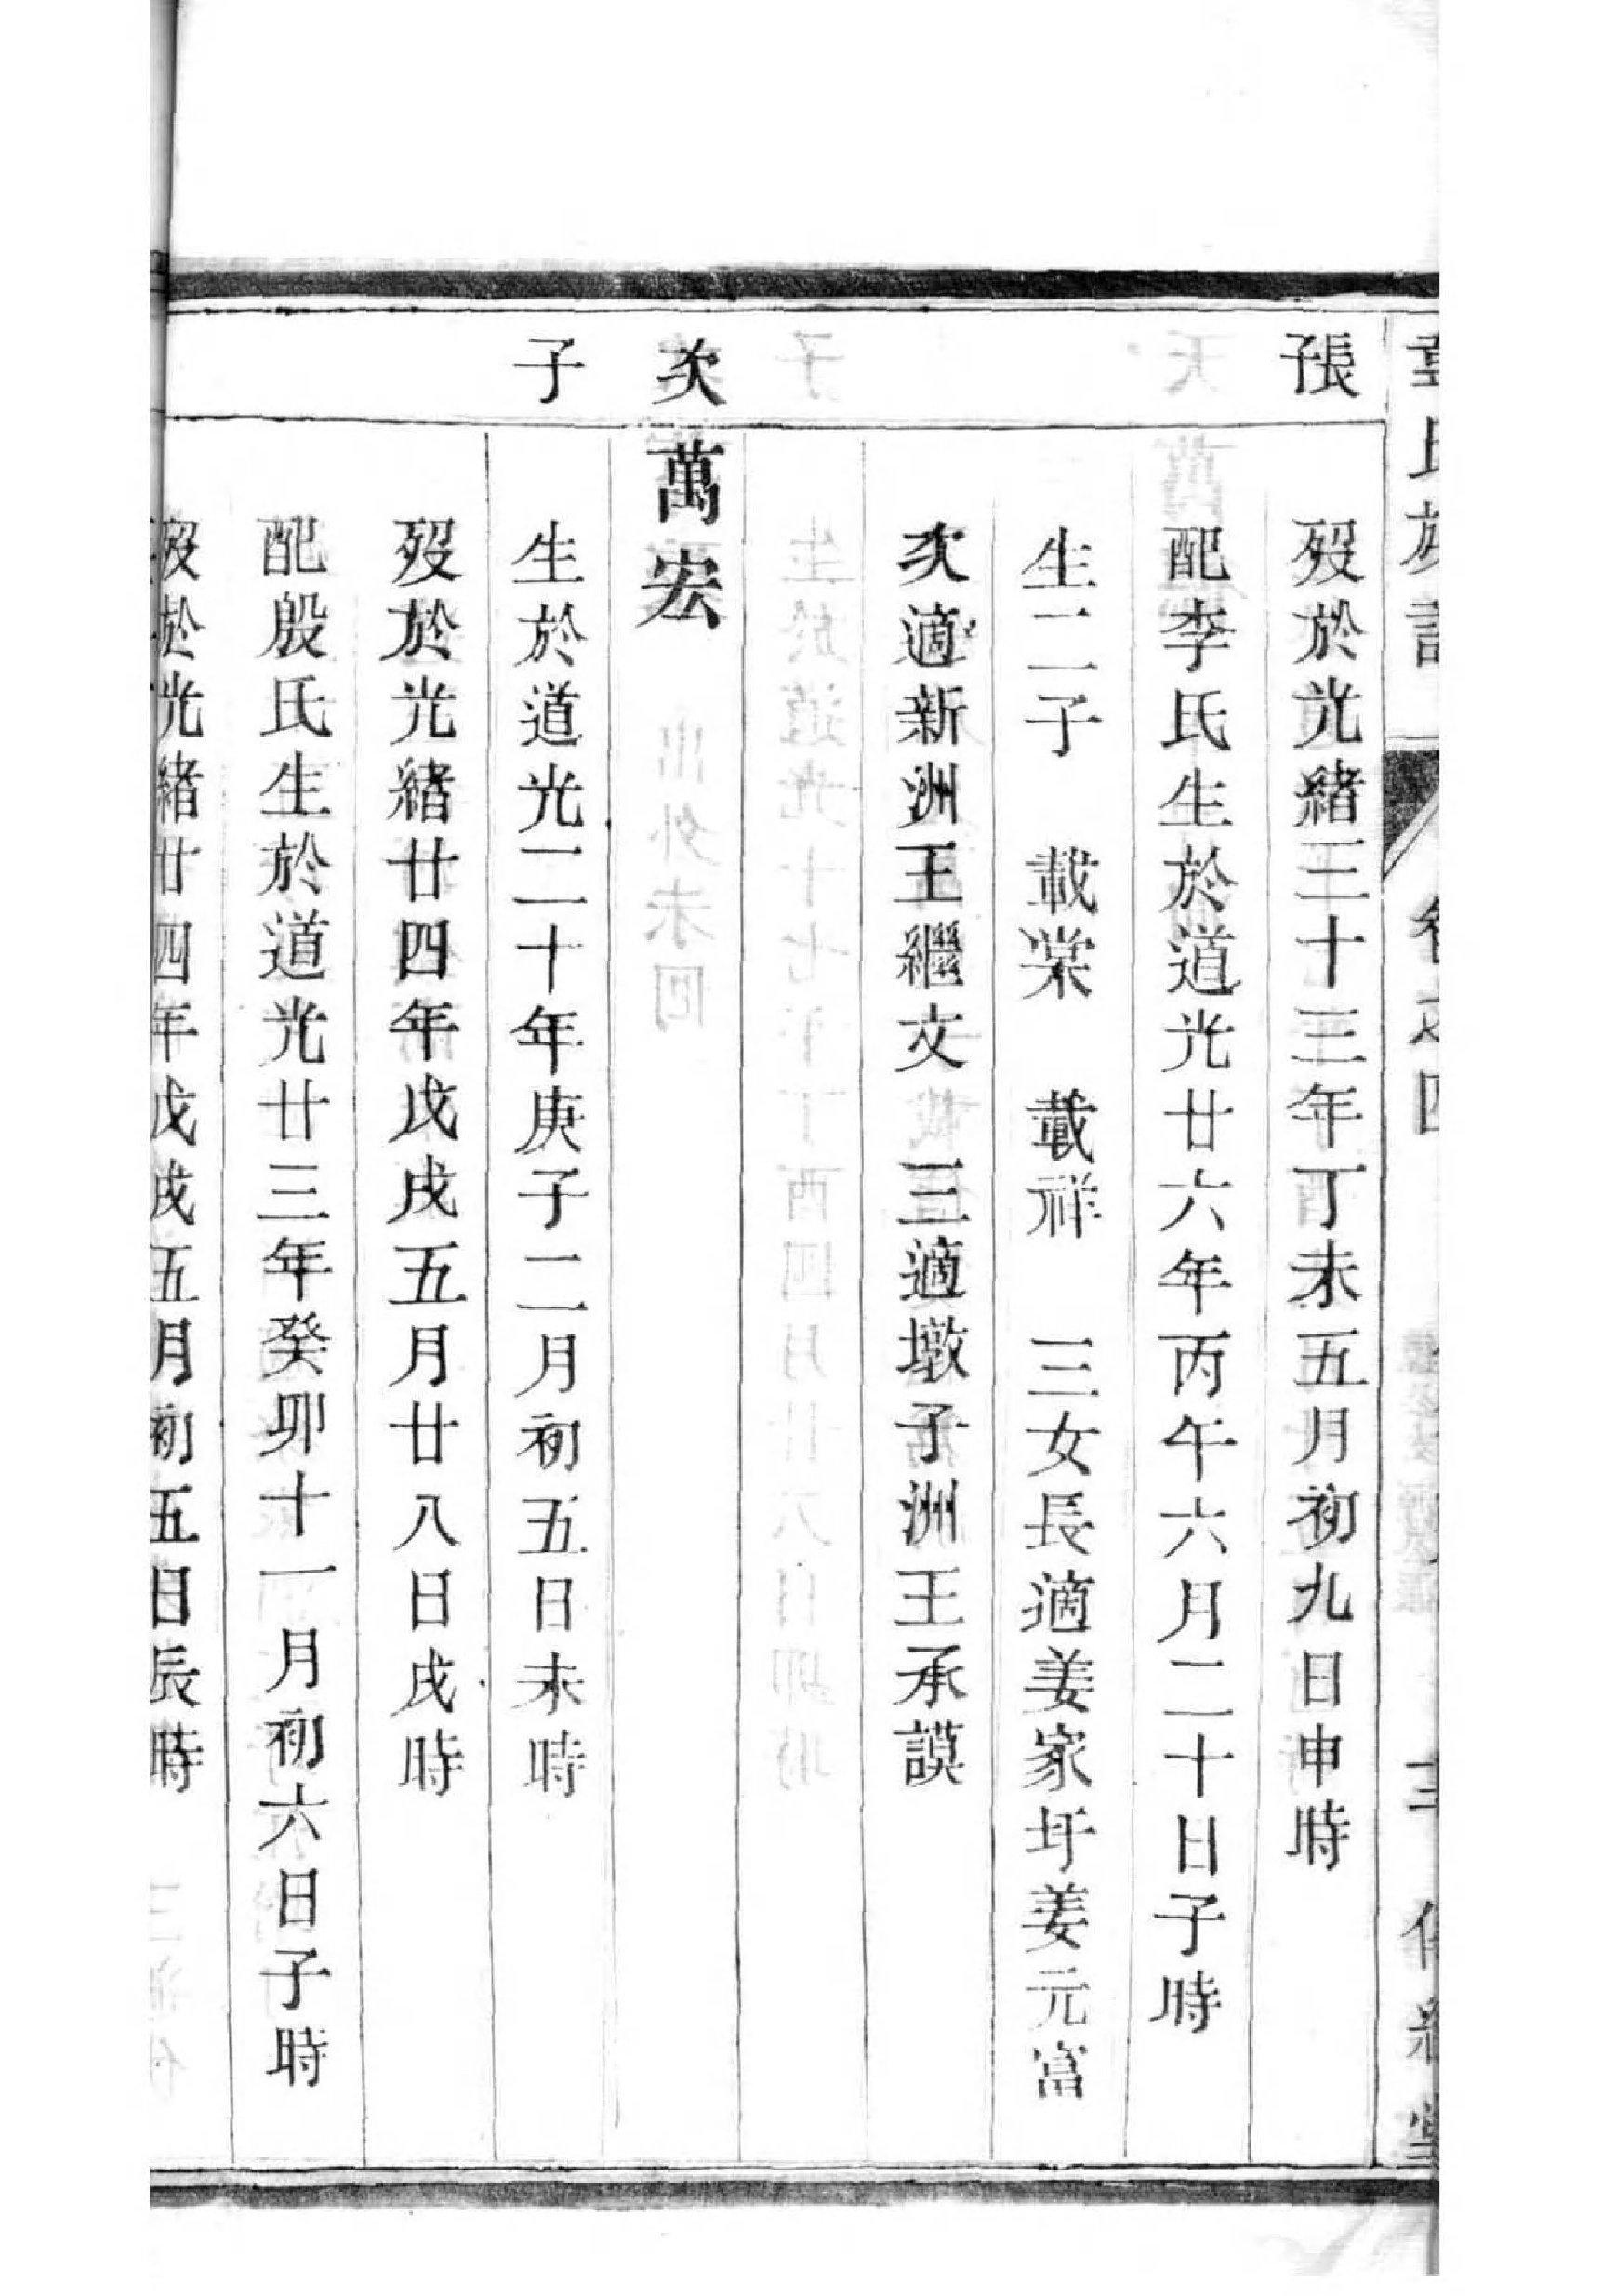 氏族譜 卷之四
長子
歿於光緒三十三年丁未五月初九日申時
配李氏生於道光廿六年丙午六月二十日子時
生二子 載棠 載祥 三女長適姜家圩姜元富
次適新洲王繼文 三適墩子洲王承謨
次 萬宏
子 生於道光二十年庚子二月初五日未時
歿於光緒廿四年戊戌五月廿八日戌時
配殷氏生於道光廿三年癸卯十一月初六日子時
歿於光緒廿四年戊戌五月初五日辰時